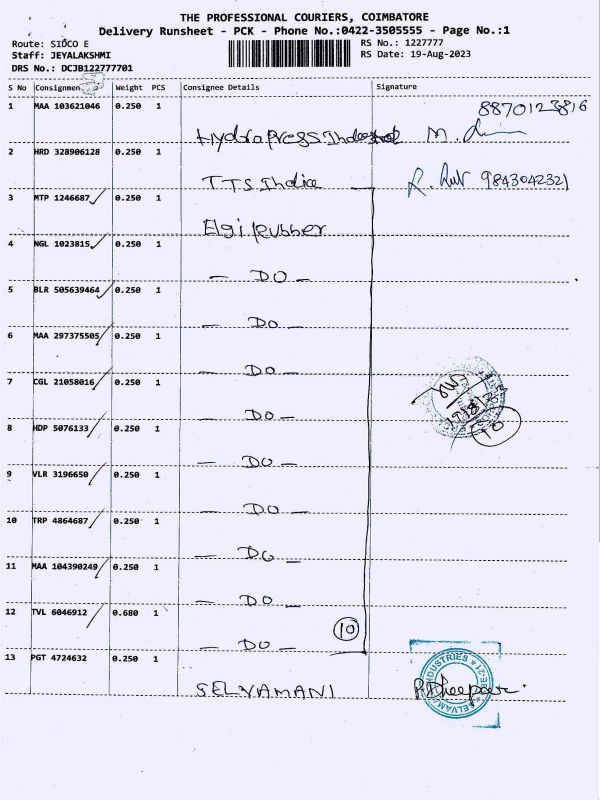 THE PROFESSIONAL COURIERS, COIMBATORE
Delivery Runsheet - PCK - Phone No.:0422-3505555 - Page No.:1
Route: SIDCO E RS No.: 1227777
Staff: JEYALAKSHMI RS Date: 19-Aug-2023
DRS No.: DCJB122777701
S No Consignmen Weight PCS Consignee Details Signature
1 MAA 103621046 0.250 1 8870123816
Hydropress M.
2 HRD 328906128 0.250 1
TTS India R. 9843042321
3 MTP 1246687 0.250 1
Elgi Rubber
4 NGL 1023815 0.250 1
- DO -
5 BLR 505639464 0.250 1
- DO -
6 MAA 297375505 0.250 1
- DO -
7 CGL 21058016 0.250 1
- DO -
8 HDP 5076133 0.250 1
10
- DO -
9 VLR 3196650 0.250 1
- DO -
10 TRP 4864687 0.250 1
- DO -
11 MAA 104390249 0.250 1
- DO -
12 TVL 6046912 0.680 1
- DO - 10
13 PGT 4724632 0.250 1
INDUSTRIES
SELVAMANI